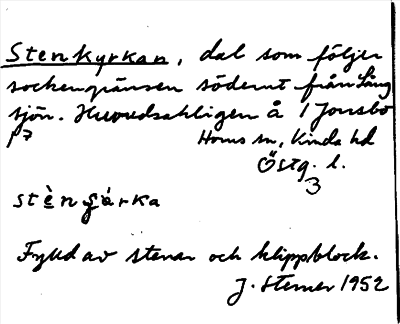 Stenkyrkan, dal som följer
sockengränsen söderut från Lång
sjön. Huvudsakligen å 1 Jonsbo
p7 Horns sn, Kinda hd
Östg. l.
3
stèn çárka
Fylld av stenar och klippblock.
J. Sterner 1952